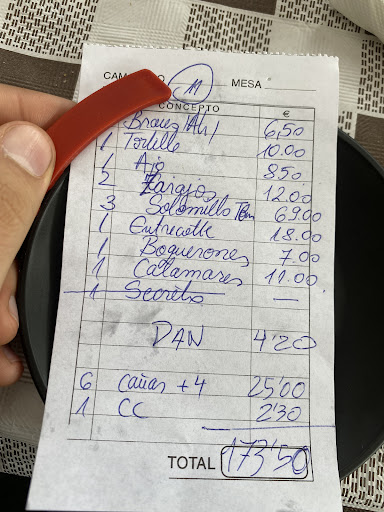 CAM O 11 MESA
CONCEPTO €
Bravas Ali 6,50
1 Tortilla 10.00
1 Ajo 8.50
2 Zarajos 12.00
3 Solomillo 69.00
1 Entrecotte 18.00
1 Boquerones 7.00
1 Calamares 11.00
1 Secreto —
PAN 4'20
6 cañas + 4 25'00
1 CC 2'30
TOTAL 173'50